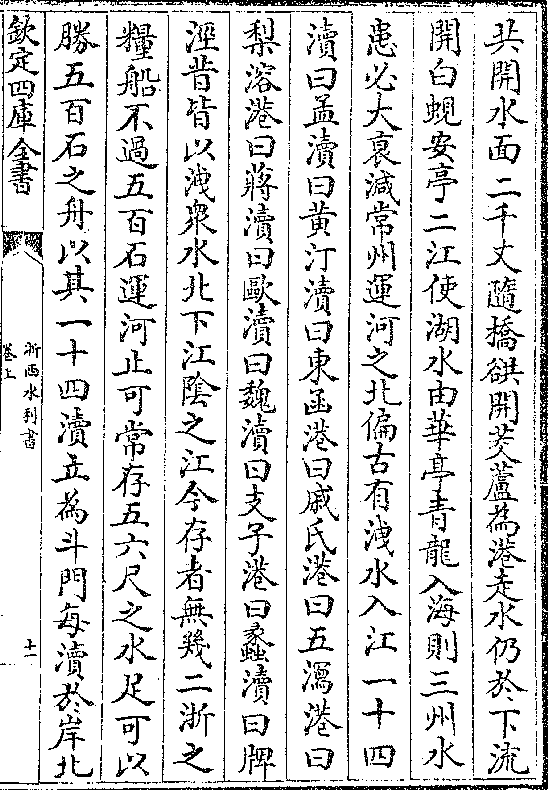 共開水面二千丈隨橋𧮾開茭蘆為港走水仍於下流
開白蜆安亭二江使湖水由華亭青龍入海則三州水
患必大衰減常州運河之北偏古有洩水入江一十四
瀆曰孟瀆曰黄汀瀆曰東函港曰戚氏港曰五瀉港曰
梨溶港曰蔣瀆曰歐瀆曰魏瀆曰支子港曰蠡瀆曰牌
涇昔皆以洩衆水北下江隂之江今存者無幾二浙之
糧船不過五百石運河止可常存五六尺之水足可以
勝五百石之舟以其一十四瀆立為斗門每瀆於岸北
欽定四庫全書
浙西水利書
卷上
十一